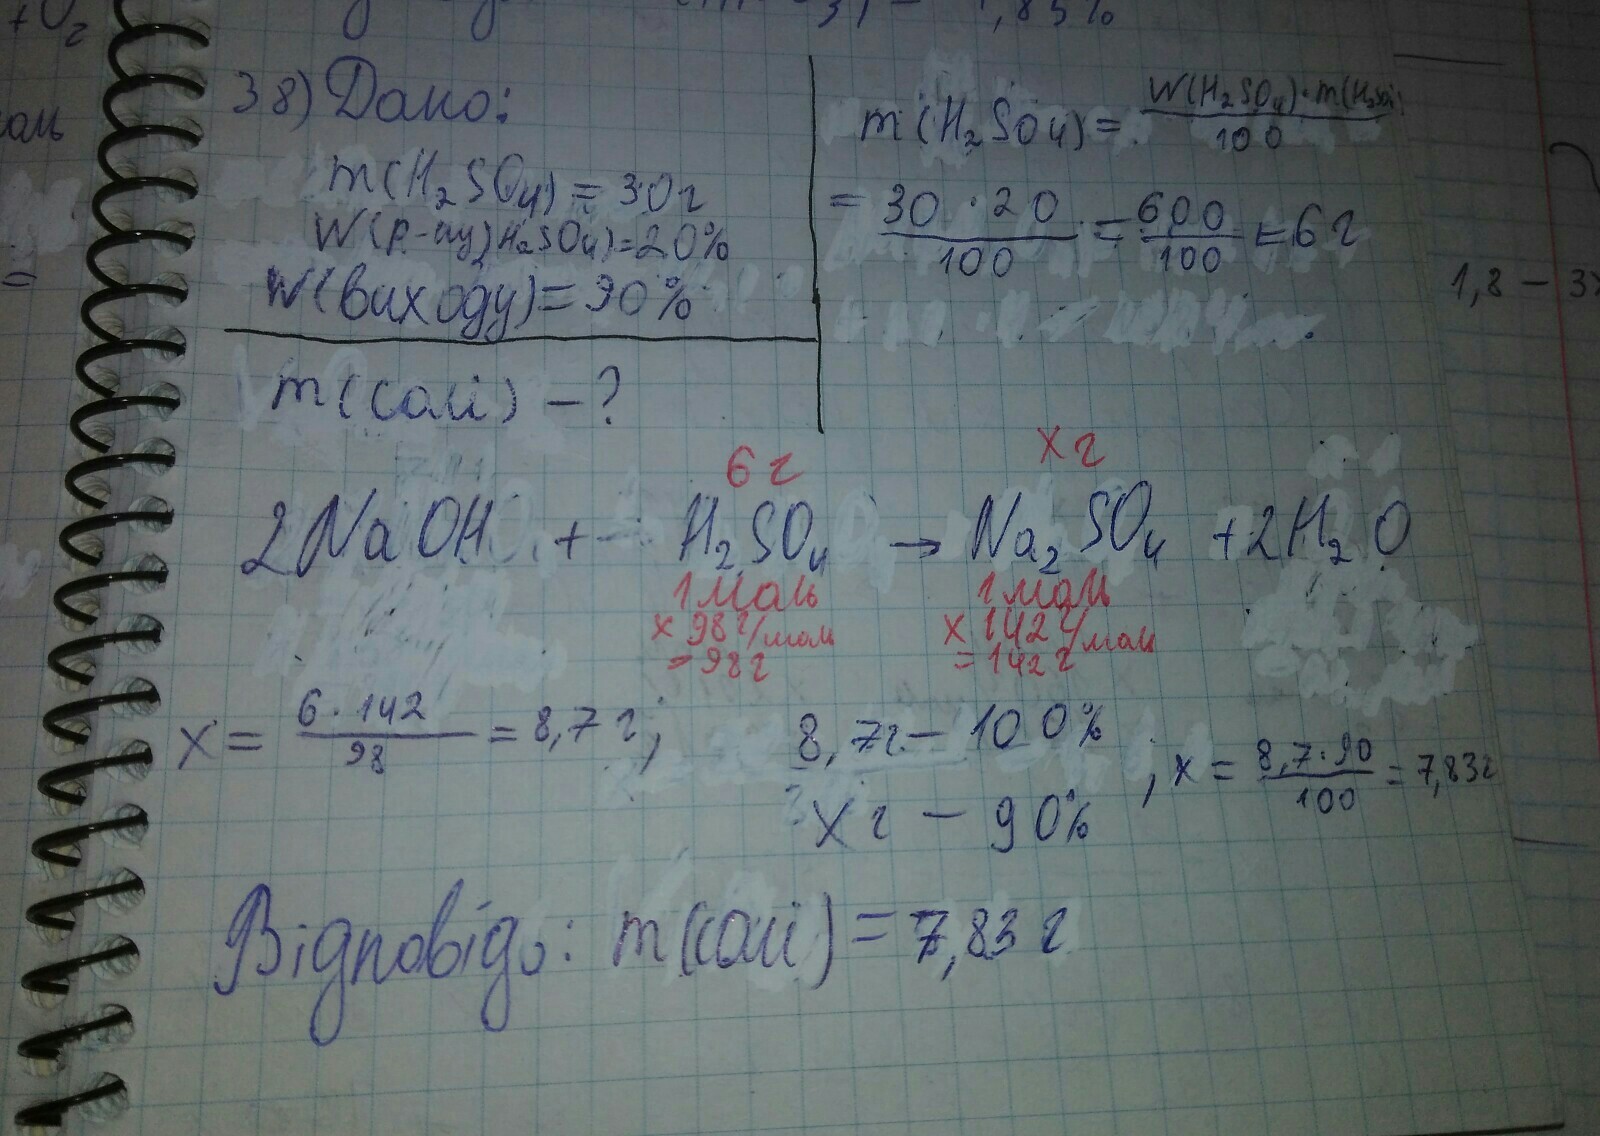 +O₂
,85%
38) Дано:
m(H₂SO₄) = 30г
W(р-ну) H₂SO₄) = 20%
W(виходу) = 90%
m(солі) – ?
m(H₂SO₄) = W(H₂SO₄)·m(H₂SO₄) / 100
= 30·20 / 100 = 600 / 100 = 6г
1,8 – 3
=
6г xг
2NaOH + H₂SO₄ → Na₂SO₄ + 2H₂O
1моль 1моль
x 98г/моль x 142г/моль
= 98г = 142г
x = 6·142 / 98 = 8,7г;
8,7г – 100%
xг – 90%
; x = 8,7·90 / 100 = 7,83г
Відповідь: m(солі) = 7,83г